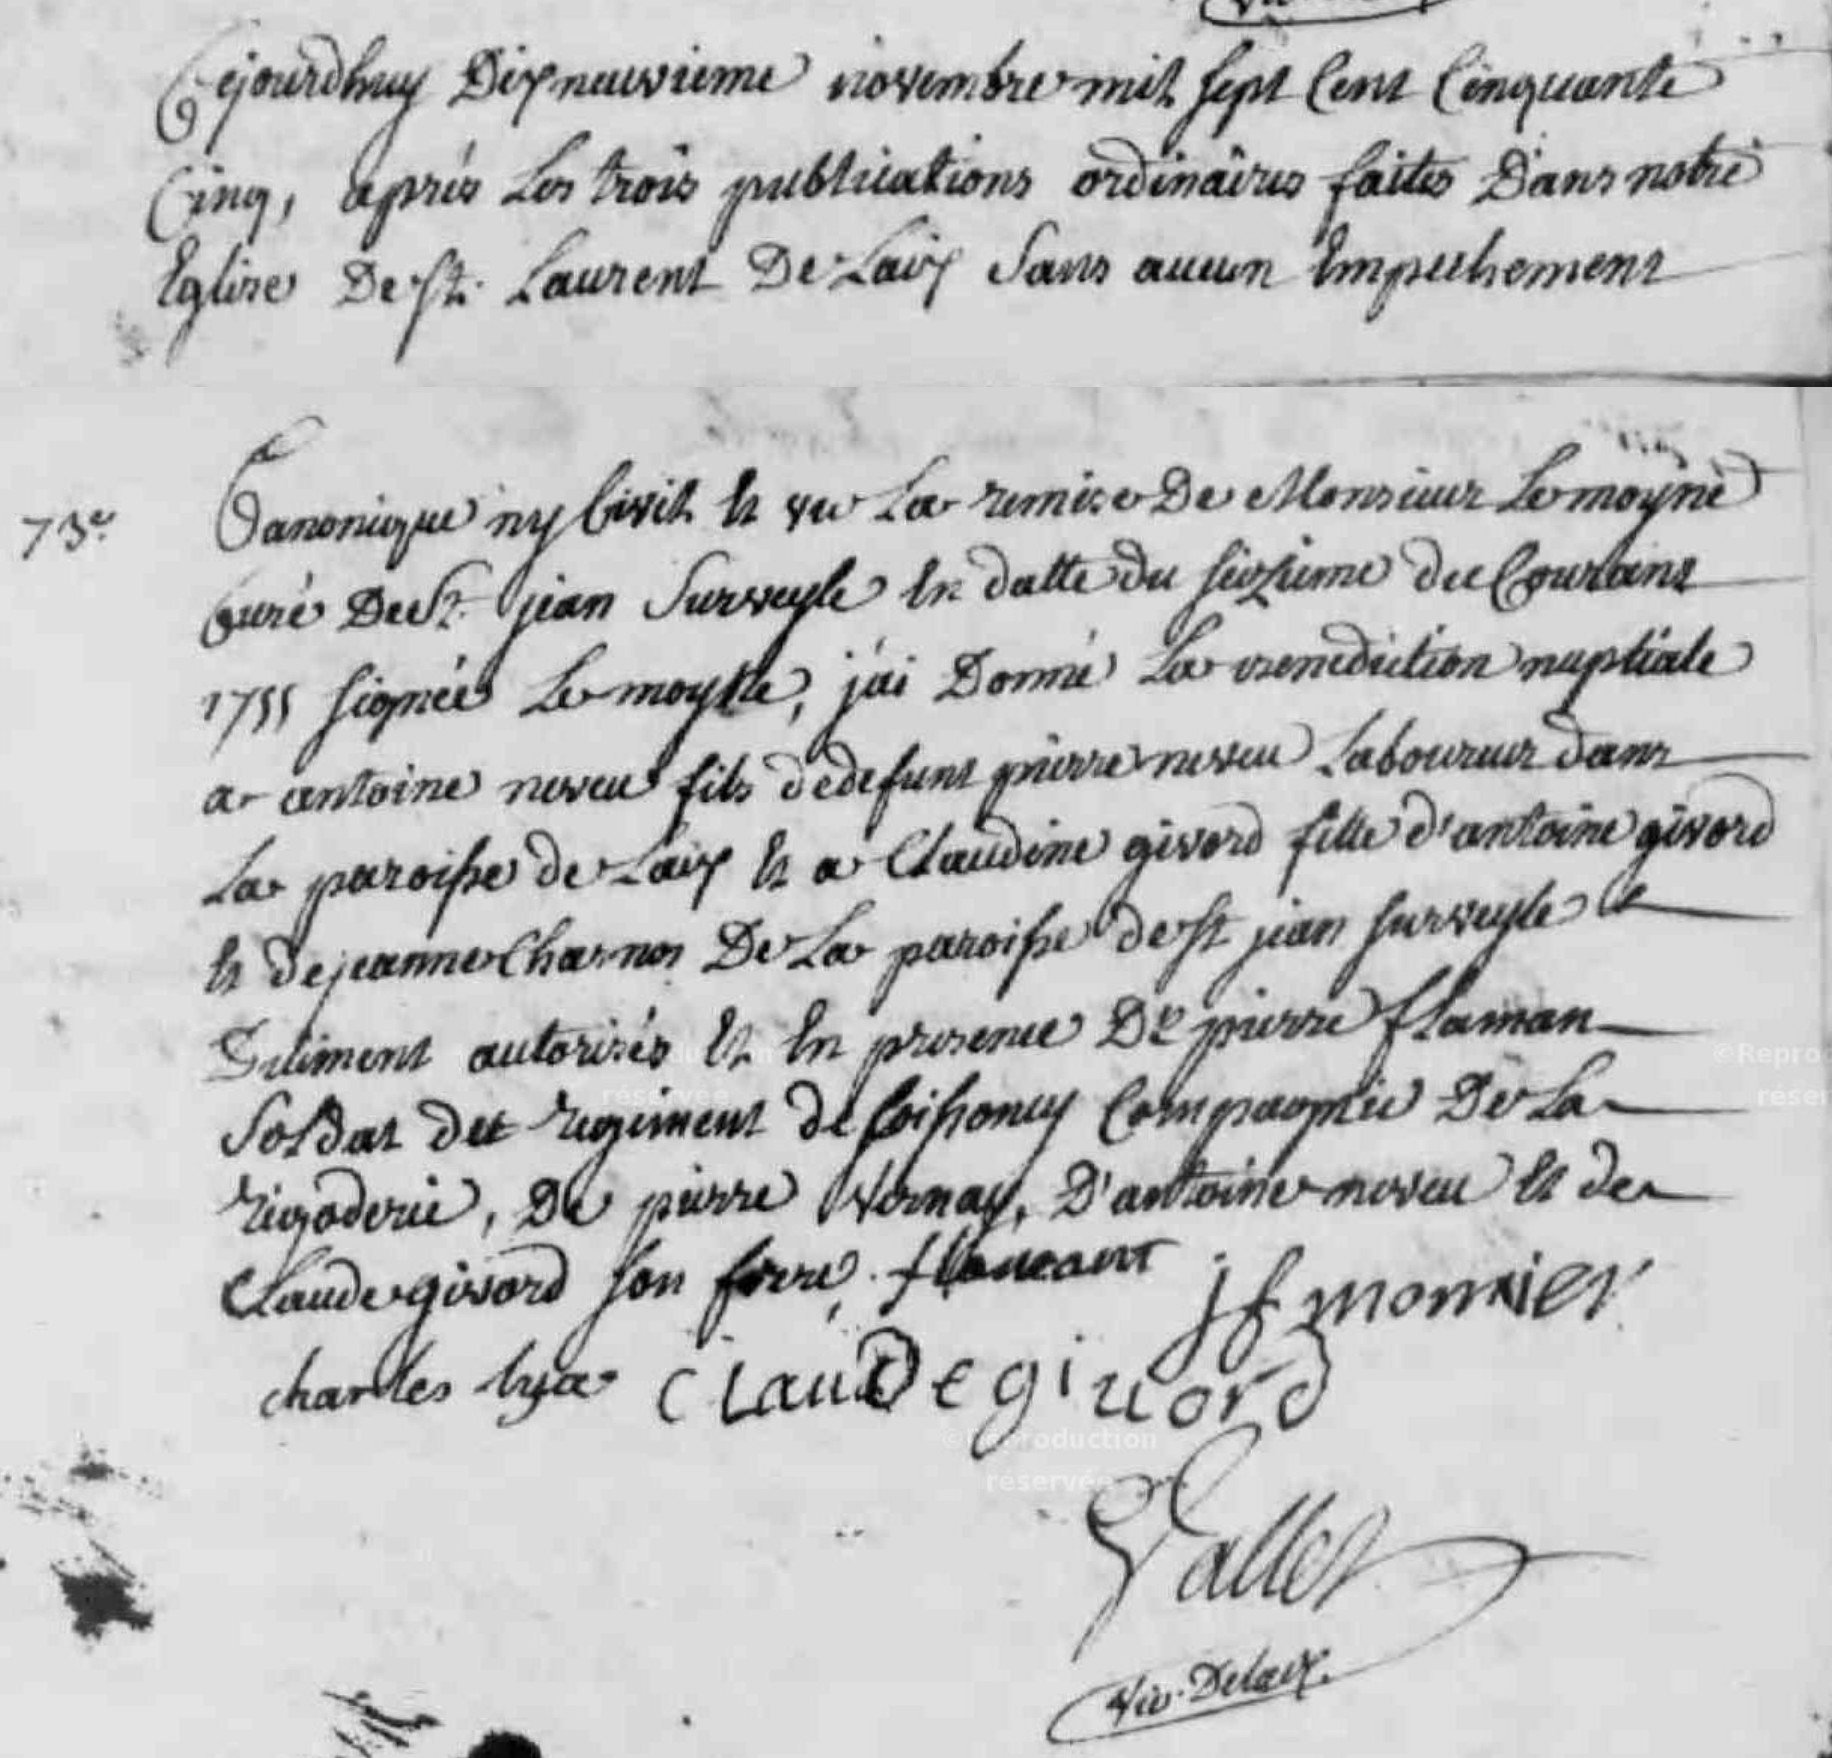 Cejourdhuy Dixneuvieme novembre mil sept Cent Cinquante
Cinq, après Les trois publications ordinaires faites Dans notre
Eglise De St. Laurent De Laix Sans aucun Empechement
73e
Canonique ny Civil Et vu La remise De Monsieur Lemoyne
Curé De St. jean Surveyle En datte du seizieme du Courant
1755 signée Le moyne, j'ai Donné La benediction nuptiale
a antoine neveu fils de defunt pierre neveu Laboureur dans
La paroisse de Laix Et a Claudine givord fille d'antoine givord
Et de jeanne Charnos De La paroisse de St jean surveyle
Duement autorisés Et En presence De pierre flaman
Soldat du regiment de Compagnie De La
rigoderie, De pierre Vernay, D'antoine neveu Et de
Claude givord son frere. j f monnier
charles claude givord
Vallet
Vic. De Laix.